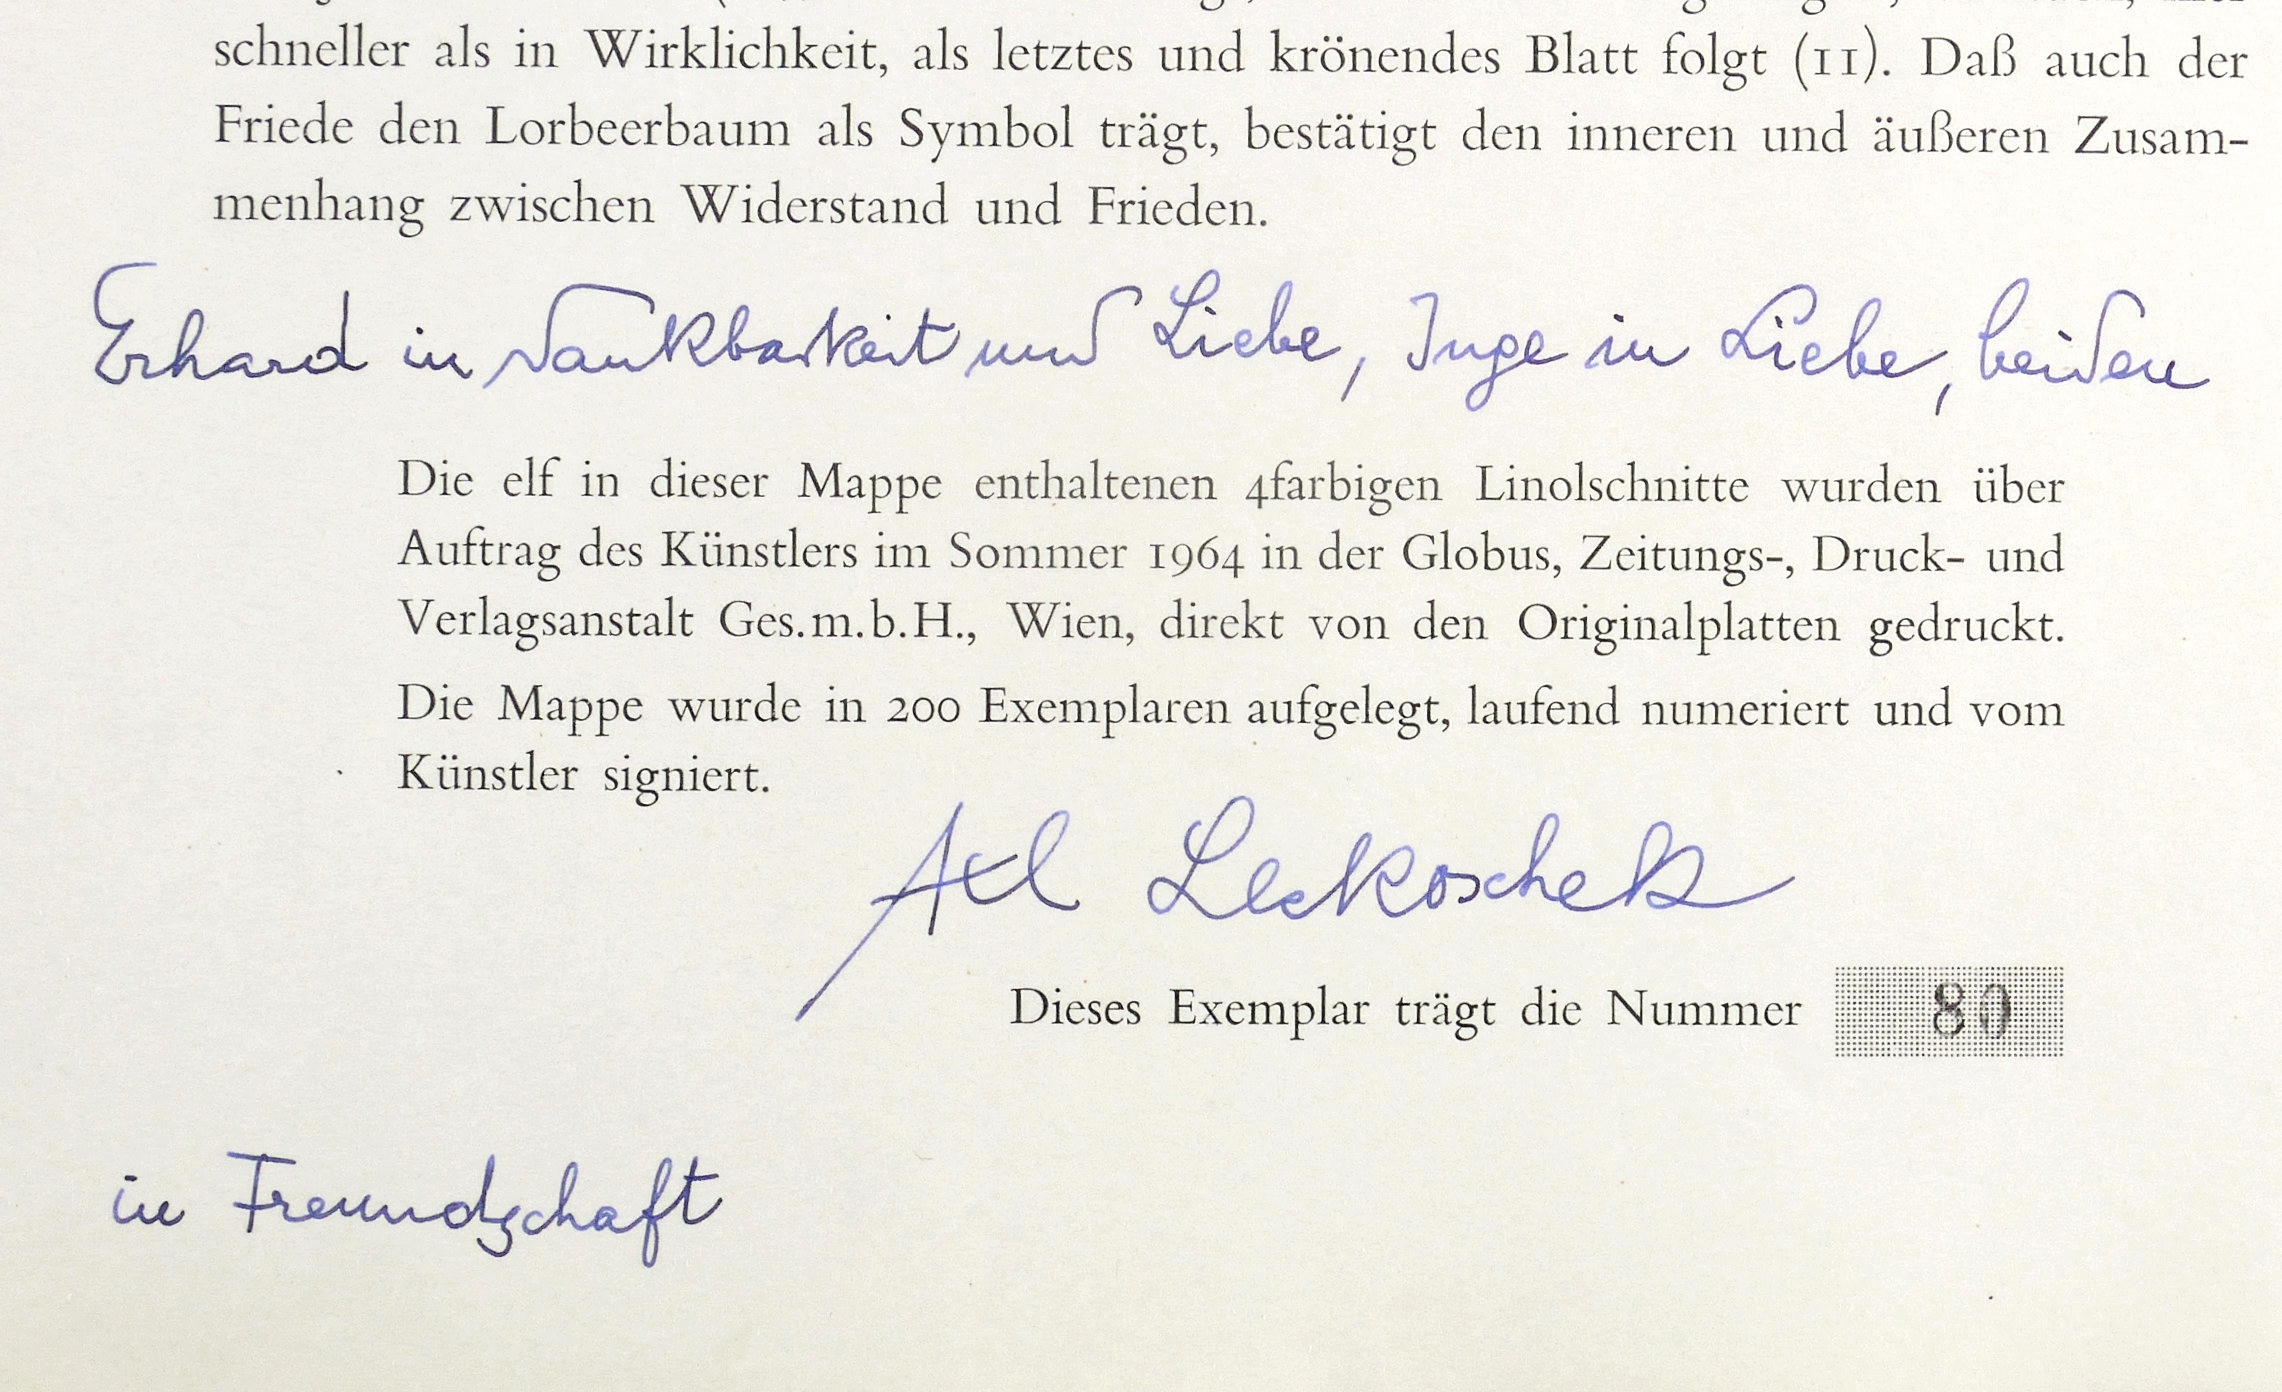 schneller als in Wirklichkeit, als letztes und krönendes Blatt folgt (11). Daß auch der
Friede den Lorbeerbaum als Symbol trägt, bestätigt den inneren und äußeren Zusam-
menhang zwischen Widerstand und Frieden.
Erhard in Dankbarkeit und Liebe, Inge in Liebe, beiden
Die elf in dieser Mappe enthaltenen 4farbigen Linolschnitte wurden über
Auftrag des Künstlers im Sommer 1964 in der Globus, Zeitungs-, Druck- und
Verlagsanstalt Ges.m.b.H., Wien, direkt von den Originalplatten gedruckt.
Die Mappe wurde in 200 Exemplaren aufgelegt, laufend numeriert und vom
Künstler signiert.
Axl Leskoschek
Dieses Exemplar trägt die Nummer 80
in Freundschaft